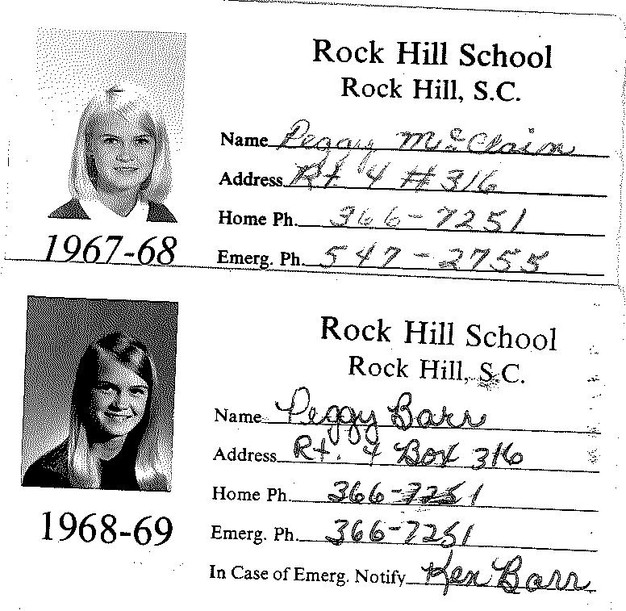 Rock Hill School
Rock Hill, S.C.
Name Peggy McClain
Address Rt 4 #316
Home Ph. 366-7251
Emerg. Ph. 547-2755
1967-68
Rock Hill School
Rock Hill, S.C.
Name Peggy Barr
Address Rt. 4 Box 316
Home Ph. 366-7251
Emerg. Ph. 366-7251
In Case of Emerg. Notify Ken Barr
1968-69